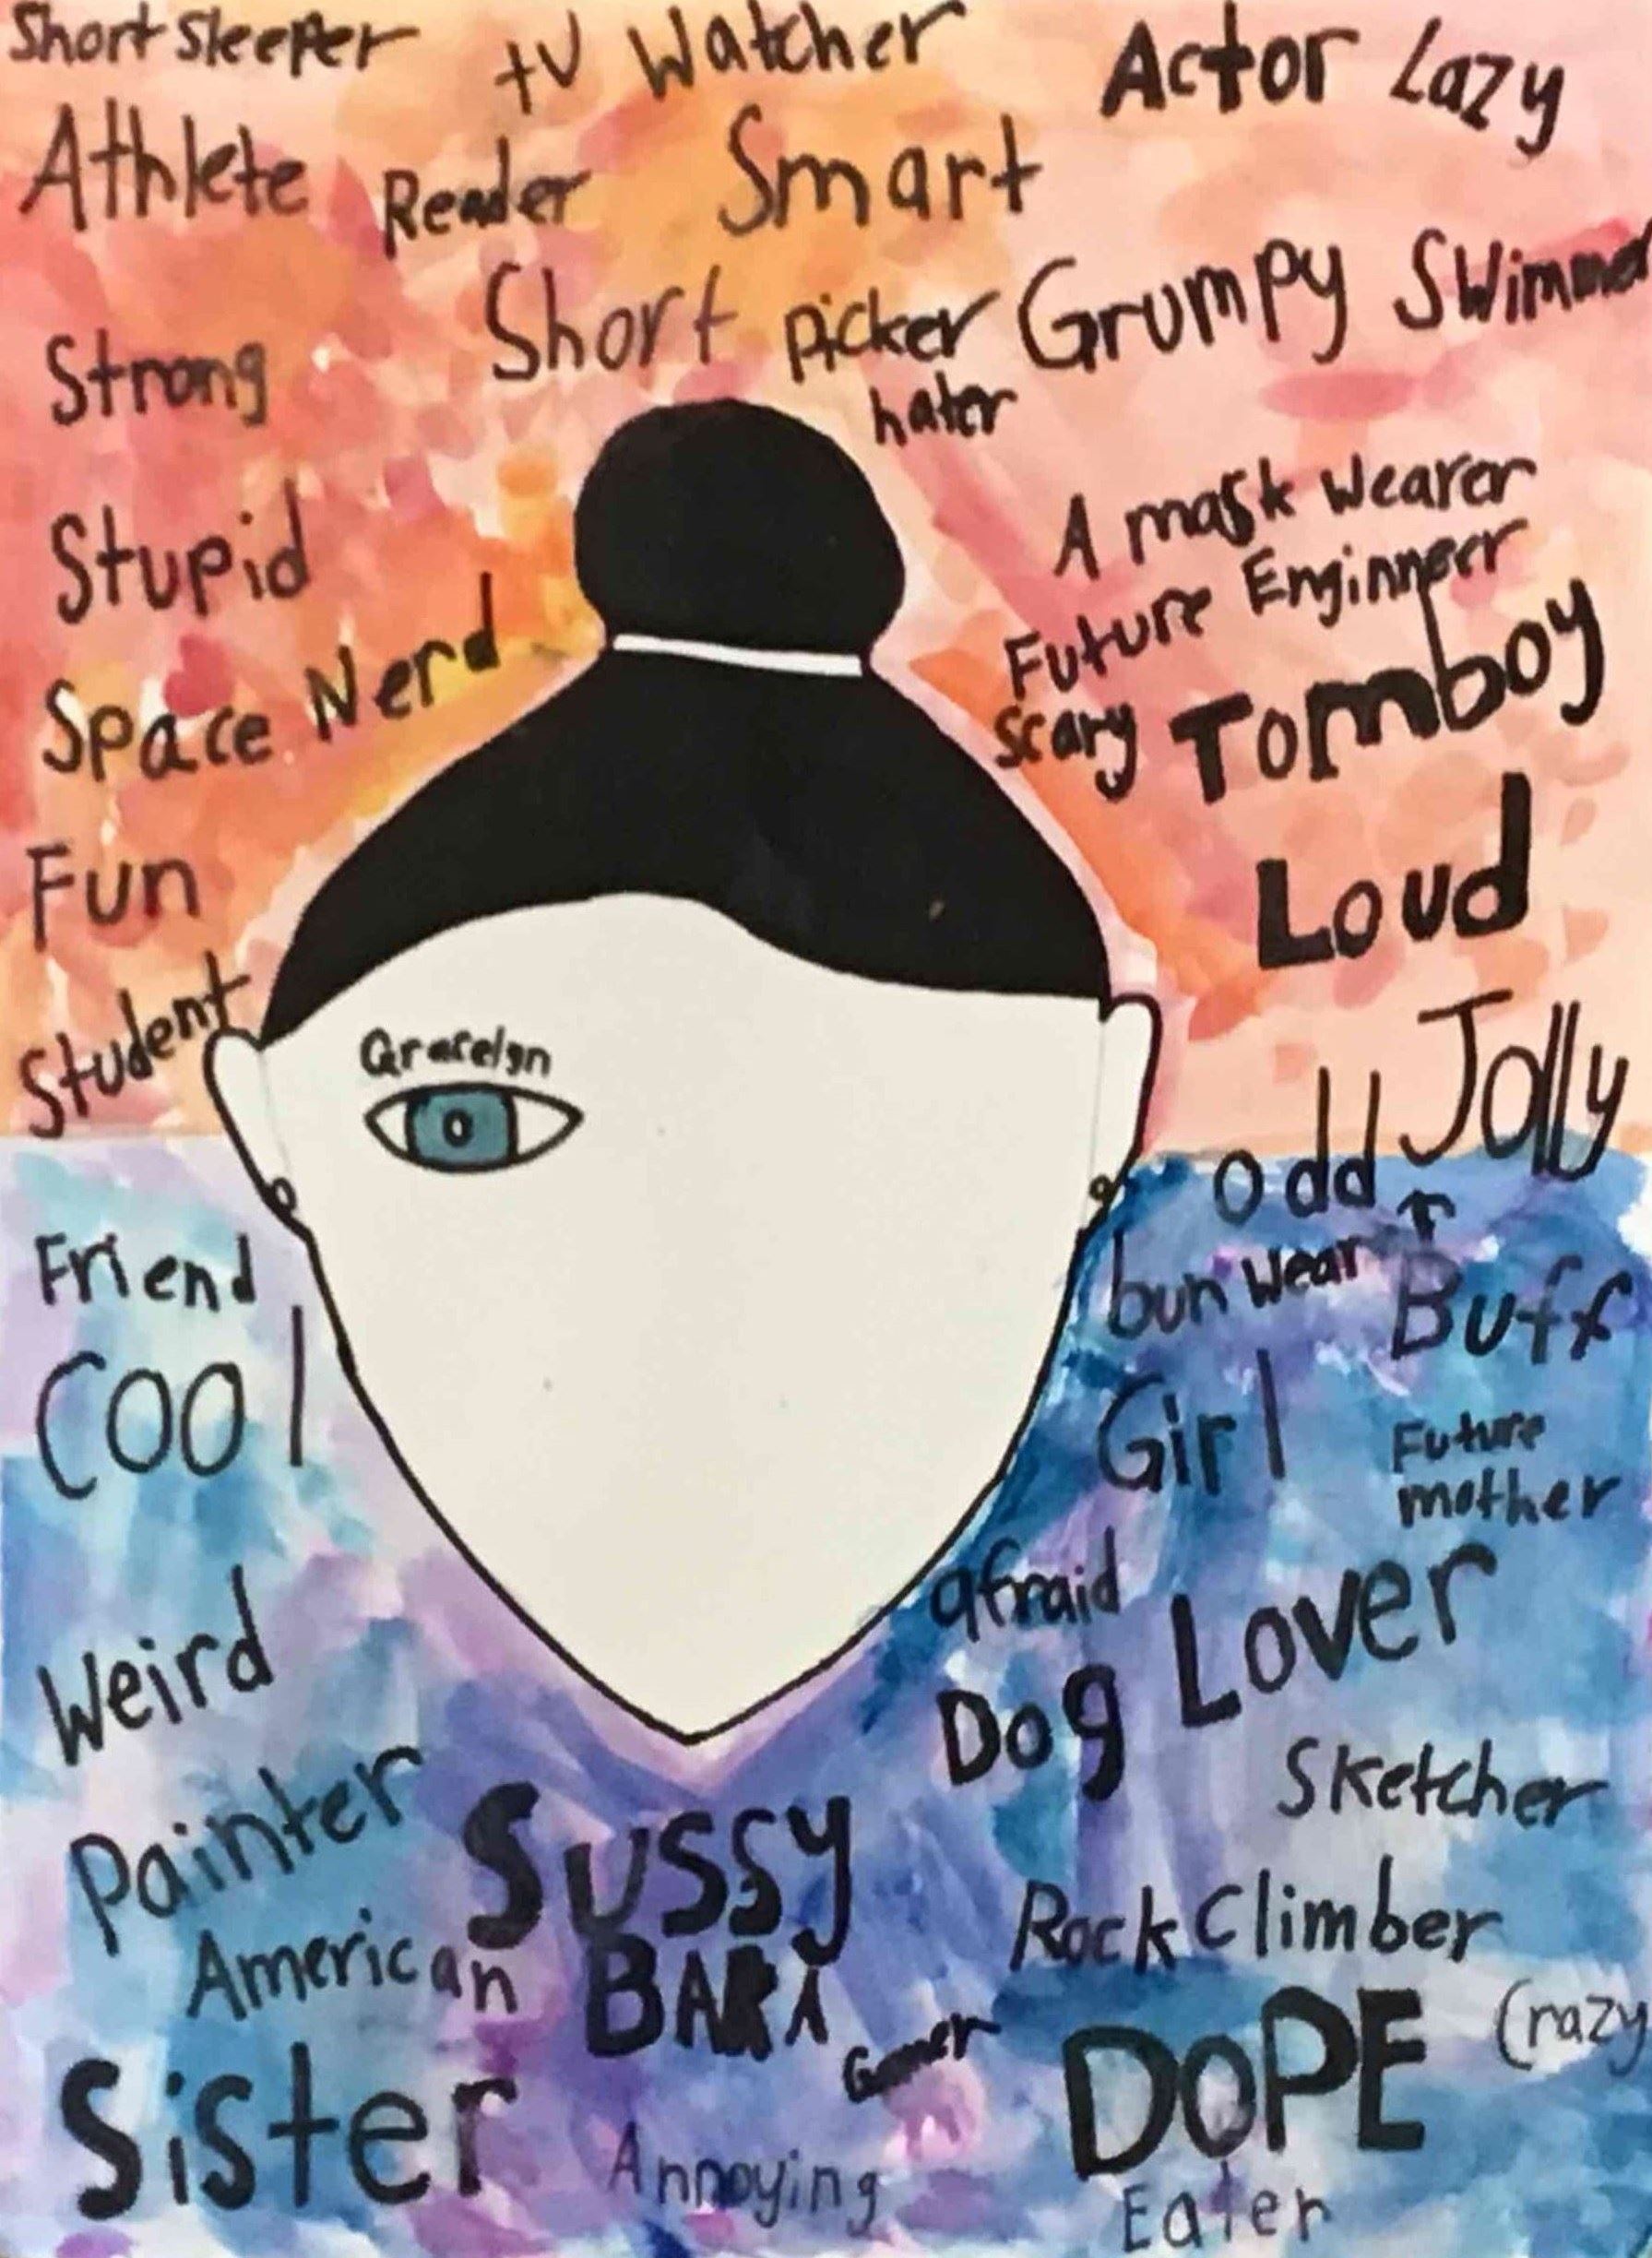 Short Sleeper
tv Watcher
Actor
Lazy
Athlete
Reader
Smart
Short
picker
hater
Grumpy
Swimmer
Strong
A mask wearer
Stupid
Future Enginneer
Space Nerd
Scary
Tomboy
Fun
Loud
Student
Gracelyn
Jolly
odd
Friend
bun wear
r
Buff
Cool
Girl
Future
mother
afraid
Weird
Dog Lover
Painter
Sketcher
Sussy
BAKA
American
Rock Climber
Gamer
DOPE
Crazy
Sister
Annoying
Eater